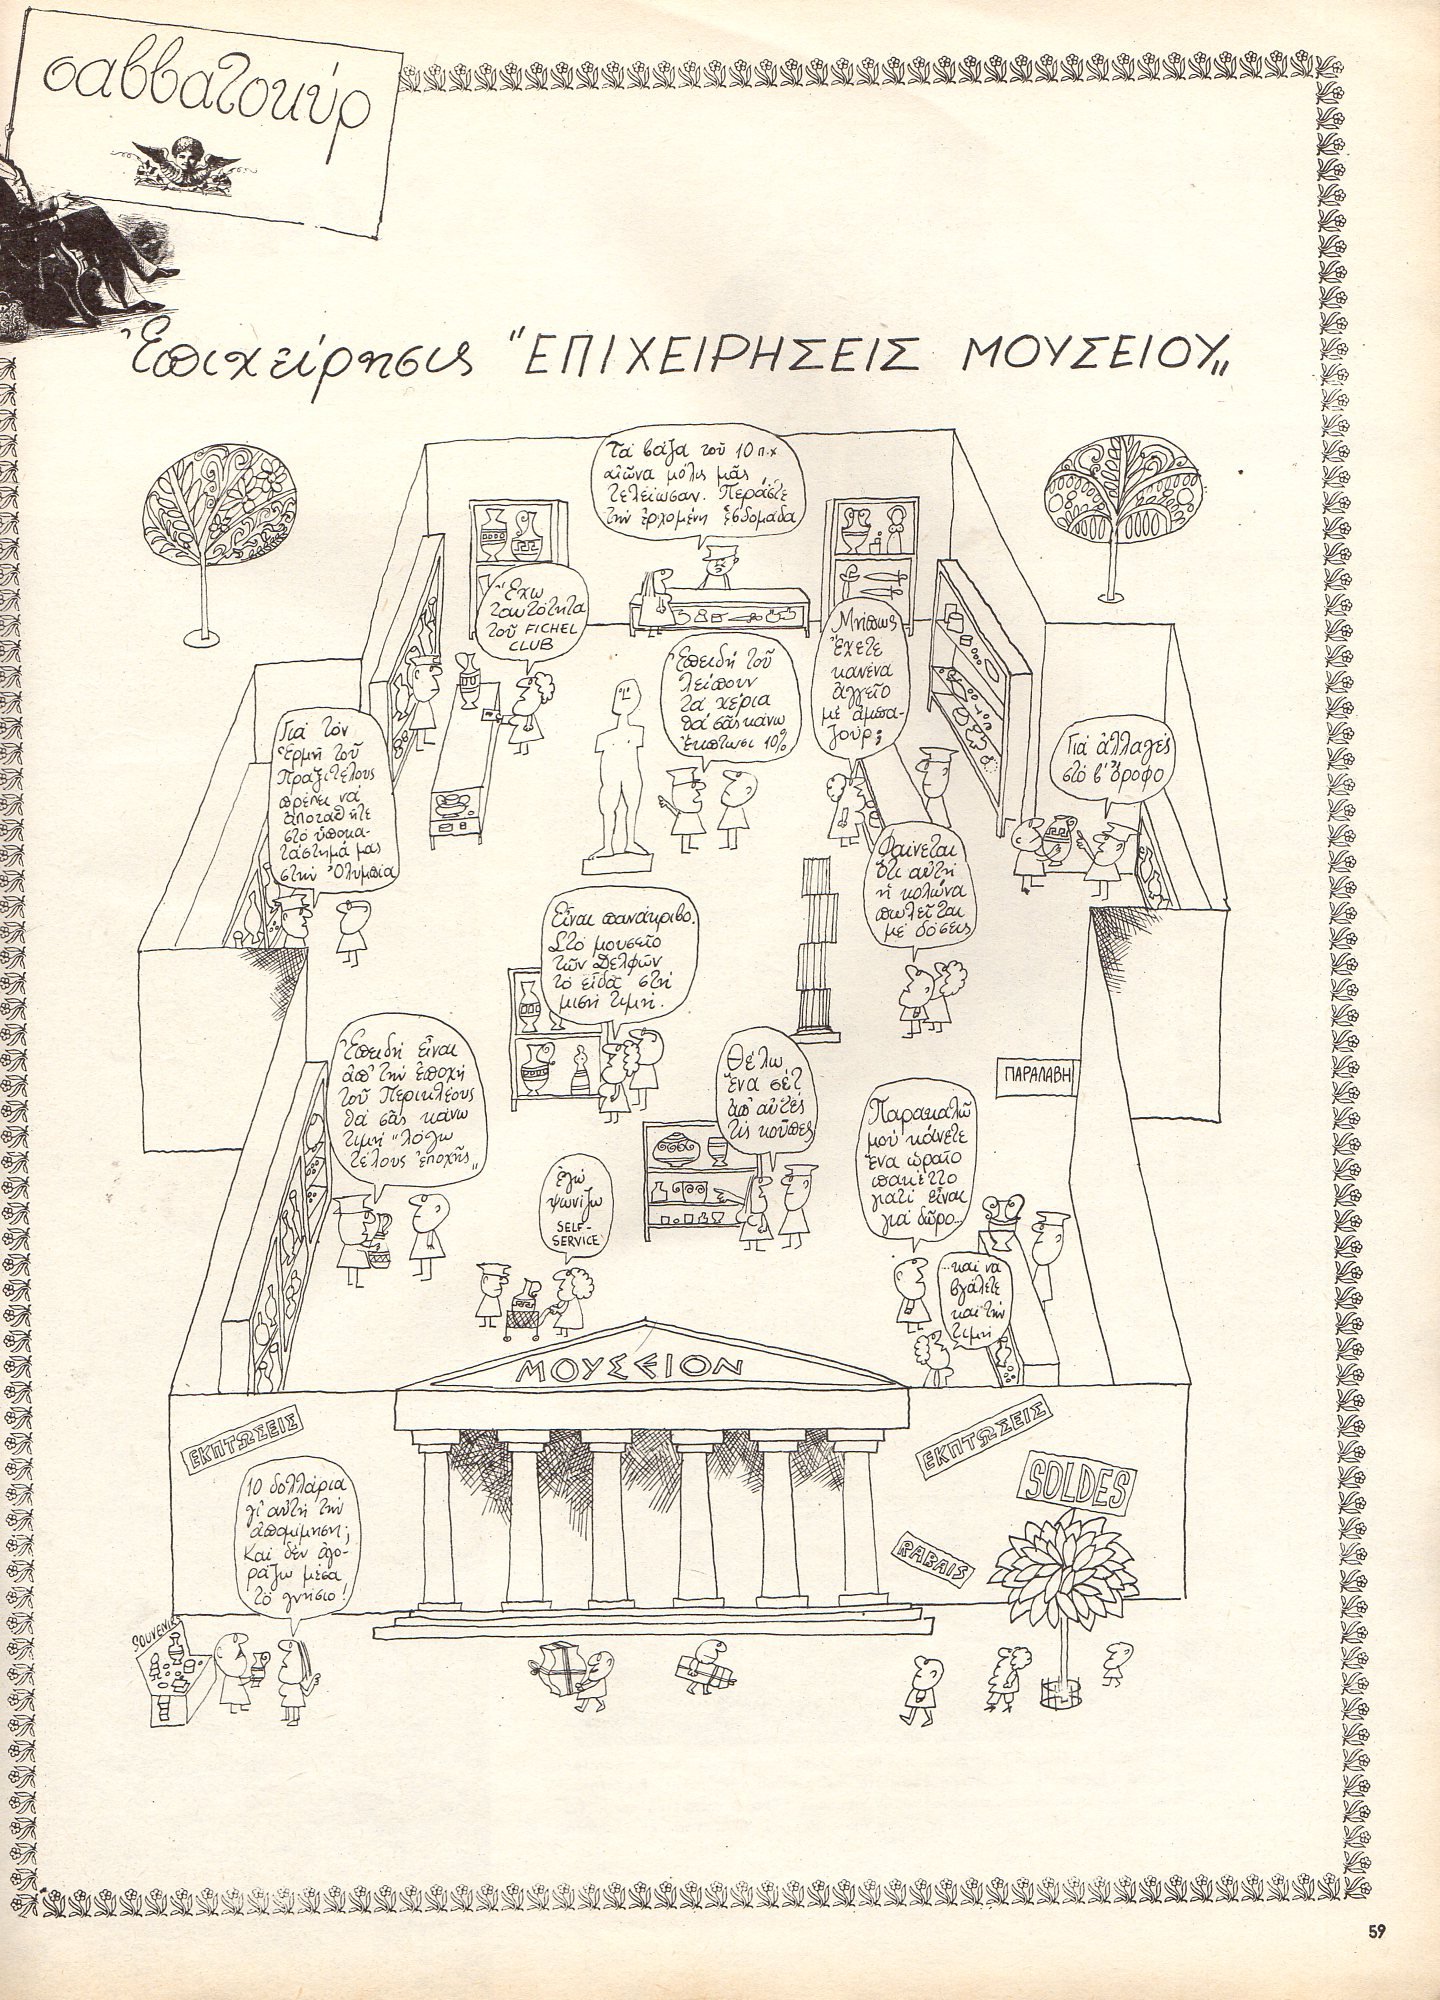 σαββατοκύρ
Ἐπιχείρησις "ΕΠΙΧΕΙΡΗΣΕΙΣ ΜΟΥΣΕΙΟΥ„
Τά βάζα τοῦ 10 π.χ
αἰῶνα μόλις μᾶς
τελείωσαν. Περάστε
τήν ἐρχομένη ἑβδομάδα
Ἔχω
ταυτότητα
τοῦ FICHEL
CLUB
Ἐπειδή τοῦ
λείπουν
τά χέρια
θά σᾶς κάνω
ἔκπτωσι 10%
Μήπως
ἔχετε
κανένα
ἀγγεῖο
μέ ἀμπα-
ζούρ;
Γιά τόν
Ἑρμῆ τοῦ
Πραξιτέλους
πρέπει νά
ἀποταθῆτε
στό ὑποκα-
τάστημά μας
στήν Ὀλυμπία
Γιά ἀλλαγές
στό β' ὄροφο
Φαίνεται
ὅτι αὐτή
ἡ κολώνα
πωλεῖται
μέ δόσεις
Εἶναι πανάκριβο.
Στό μουσεῖο
τῶν Δελφῶν
τό εἶδα στή
μισή τιμή.
Ἐπειδή εἶναι
ἀπ' τήν ἐποχή
τοῦ Περικλέους
θά σᾶς κάνω
τιμή "λόγω
τέλους ἐποχῆς„
Θέλω
ἕνα σέτ
ἀπ' αὐτές
τίς κοῦπες
ΠΑΡΑΛΑΒΗ
Παρακαλῶ
μοῦ κάνετε
ἕνα ὡραῖο
πακέττο
γιατί εἶναι
γιά δῶρο...
ἐγώ
ψωνίζω
SELF-
SERVICE
...καί νά
βγάλετε
καί τήν
τιμή
ΜΟΥΣΕΙΟΝ
ΕΚΠΤΩΣΕΙΣ
ΕΚΠΤΩΣΕΙΣ
SOLDES
RABAIS
10 δολλάρια
γι' αὐτή τήν
ἀπομίμηση;
Καί δέν ἀγο-
ράζω μέσα
τό γνήσιο!
SOUVENIR
59